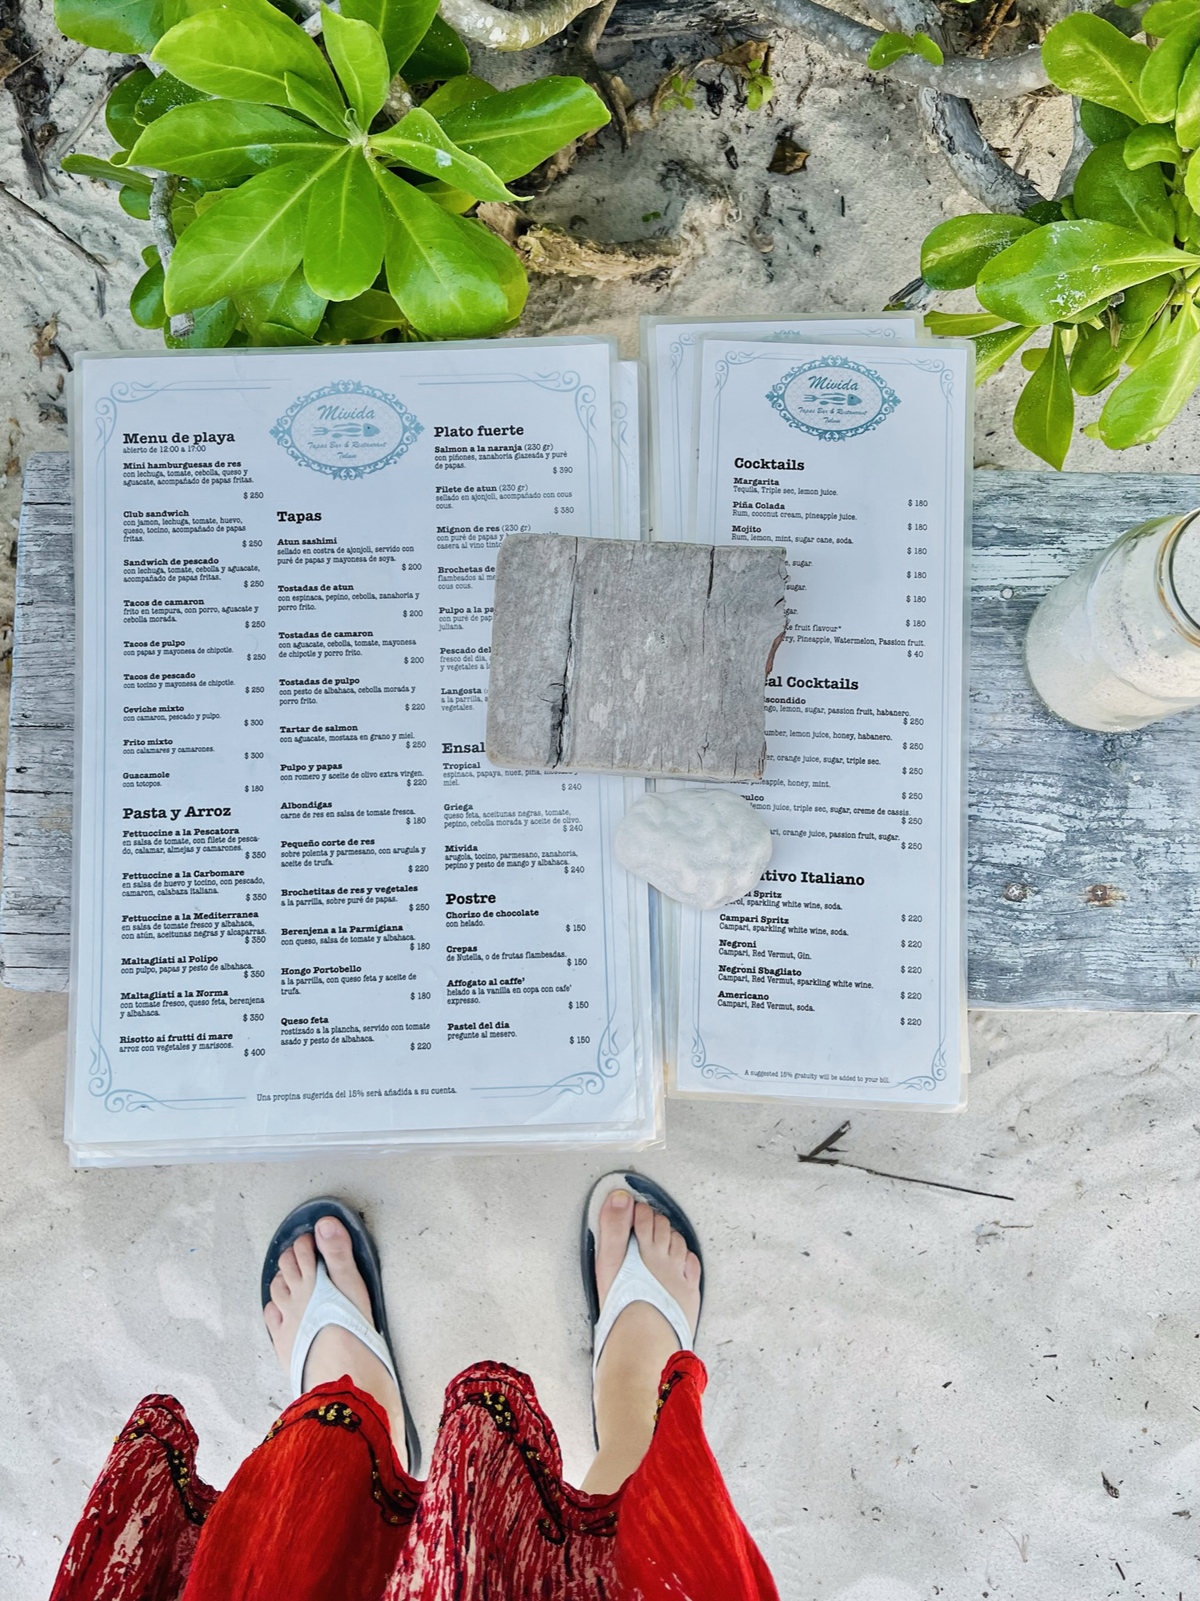 Menu de playa
abierto de 12:00 a 17:00
Mini hamburguesas de res
con lechuga, tomate, cebolla, queso y
aguacate, acompañado de papas fritas.
$ 250
Club sandwich
con jamon, lechuga, tomate, huevo,
queso, tocino, acompañado de papas
fritas.
$ 250
Sandwich de pescado
con lechuga, tomate, cebolla y aguacate,
acompañado de papas fritas.
$ 250
Tacos de camaron
frito en tempura, con porro, aguacate y
cebolla morada.
$ 250
Tacos de pulpo
con papas y mayonesa de chipotle.
$ 250
Tacos de pescado
con tocino y mayonesa de chipotle.
$ 250
Ceviche mixto
con camaron, pescado y pulpo.
$ 300
Frito mixto
con calamares y camarones.
$ 300
Guacamole
con totopos.
$ 180
Pasta y Arroz
Fettuccine a la Pescatora
en salsa de tomate, con filete de pesca-
do, calamar, almejas y camarones.
$ 350
Fettuccine a la Carbomare
en salsa de huevo y tocino, con pescado,
camaron, calabaza italiana.
$ 350
Fettuccine a la Mediterranea
en salsa de tomate fresco y albahaca,
con atún, aceitunas negras y alcaparras.
$ 350
Maltagliati al Polipo
con pulpo, papas y pesto de albahaca.
$ 350
Maltagliati a la Norma
con tomate fresco, queso feta, berenjena
y albahaca.
$ 350
Risotto ai frutti di mare
arroz con vegetales y mariscos.
$ 400
Mivida
Tapas Bar & Restaurant
Tulum
Tapas
Atun sashimi
sellado en costra de ajonjoli, servido con
puré de papas y mayonesa de soya.
$ 200
Tostadas de atun
con espinaca, pepino, cebolla, zanahoria y
porro frito.
$ 200
Tostadas de camaron
con aguacate, cebolla, tomate, mayonesa
de chipotle y porro frito.
$ 200
Tostadas de pulpo
con pesto de albahaca, cebolla morada y
porro frito.
$ 220
Tartar de salmon
con aguacate, mostaza en grano y miel.
$ 250
Pulpo y papas
con romero y aceite de olivo extra virgen.
$ 220
Albondigas
carne de res en salsa de tomate fresca.
$ 180
Pequeño corte de res
sobre polenta y parmesano, con arugula y
aceite de trufa.
$ 220
Brochetitas de res y vegetales
a la parrilla, sobre puré de papas.
$ 250
Berenjena a la Parmigiana
con queso, salsa de tomate y albahaca.
$ 180
Hongo Portobello
a la parrilla, con queso feta y aceite de
trufa.
$ 180
Queso feta
rostizado a la plancha, servido con tomate
asado y pesto de albahaca.
$ 220
Plato fuerte
Salmon a la naranja (230 gr)
con piñones, zanahoria glazeada y puré
de papas.
$ 390
Filete de atun (230 gr)
sellado en ajonjoli, acompañado con cous
cous.
$ 380
Mignon de res (230 gr)
con puré de papas y
casera al vino tinto
Brochetas de
flambeados al
cous cous.
Pulpo a la
con puré de
juliana.
Pescado del
fresco del dia,
y vegetales a
Langosta
a la parrilla,
vegetales.
Tropical
espinaca, papaya, nuez, piña,
miel.
$ 240
Griega
queso feta, aceitunas negras, tomate,
pepino, cebolla morada y aceite de olivo.
$ 240
Mivida
arugola, tocino, parmesano, zanahoria,
pepino y pesto de mango y albahaca.
$ 240
Postre
Chorizo de chocolate
con helado.
$ 150
Crepas
de Nutella, o de frutas flambeadas.
$ 150
Affogato al caffe'
helado a la vanilla en copa con cafe'
expresso.
$ 150
Pastel del dia
pregunte al mesero.
$ 150
Una propina sugerida del 15% será añadida a su cuenta.
Mivida
Tapas Bar & Restaurant
Tulum
Cocktails
Margarita
Tequila, Triple sec, lemon juice.
$ 180
Piña Colada
Rum, coconut cream, pineapple juice.
$ 180
Mojito
Rum, lemon, mint, sugar cane, soda.
$ 180
sugar.
$ 180
$ 180
$ 180
fruit flavour*
Pineapple, Watermelon, Passion fruit.
$ 40
Cocktails
lemon, sugar, passion fruit, habanero.
$ 250
lemon juice, honey, habanero.
$ 250
orange juice, sugar, triple sec.
$ 250
pineapple, honey, mint.
$ 250
lemon juice, triple sec, sugar, creme de cassis.
$ 250
orange juice, passion fruit, sugar.
$ 250
Italiano
Spritz
sparkling white wine, soda.
$ 220
Campari Spritz
Campari, sparkling white wine, soda.
$ 220
Negroni
Campari, Red Vermut, Gin.
$ 220
Negroni Sbagliato
Campari, Red Vermut, sparkling white wine.
$ 220
Americano
Campari, Red Vermut, soda.
$ 220
A suggested 15% gratuity will be added to your bill.